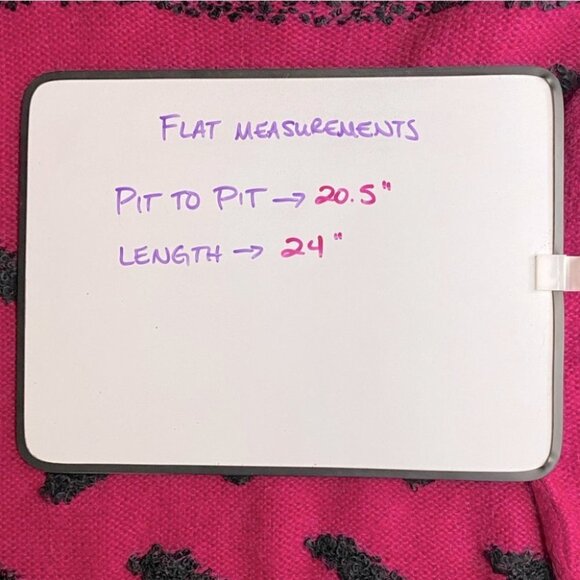 FLAT MEASUREMENTS
PIT TO PIT → 20.5"
LENGTH → 24"